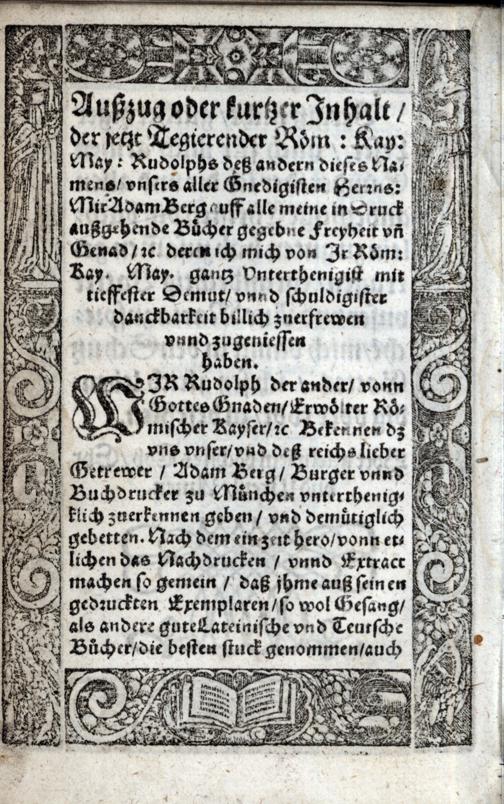 Außzug oder kurtzer Inhalt /
der jetzt Regierender Röm : Kay:
May : Rudolphs deß andern dieses Na⸗
mens/ vnsers aller Gnedigisten Herrns:
Mir Adam Berg auff alle meine in Druck
außgehende Bücher gegebne Freyheit vñ
Genad / ꝛc deren ich mich von Jr Röm:
Kay. May. gantz Vnterthenigist mit
tieffester Demut/ vnnd schuldigister
danckbarkeit billich zuerfrewen
vnnd zugeniessen
haben.
WJR Rudolph der ander/ vonn
Gottes Gnaden/ Erwölter Rö⸗
mischer Kayser/ ꝛc Bekennen dz
vns vnser/ vnd deß reichs lieber
Getrewer / Adam Berg / Burger vnnd
Buchdrucker zu München vnterthenig⸗
klich zuerkennen geben / vnd demütiglich
gebetten. Nach dem ein zeit hero/ vonn et⸗
lichen das Nachdrucken / vnnd Extract
machen so gemein / daß jhme auß seinen
gedruckten Exemplaren/ so wol Gesang/
als andere gute Lateinische vnd Teutsche
Bücher/ die besten stuck genommen/ auch